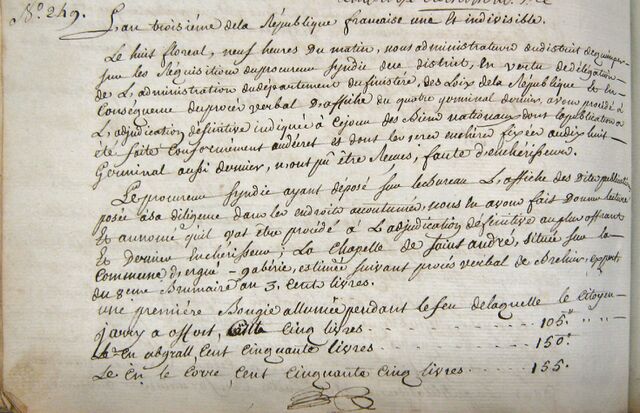 No. 249. L'an troisiéme dela République francaise une et indivisible.
Le huit floreal, neuf heures du matin, nous administrateurs du district de quimper
sur les Réquisitions du procureur Syndic dece district, en vertu de délégation
de L'administration du département du finistère, des Loix dela République et en
Conséquence du procés verbal D'affiche du quatre germinal dernier, avons procédé à
L'adjudication définitive indiquée à cejour des Biens nationaux dont la publication a
été faite Conformement audécret et dont les encheres fixée audix huit
Germinal aussi dernier, n'ont pu être Recues, faute d'enchérisseurs.
Le procureur Syndic ayant déposé sur lebureau L'affiche des Dites publications
posée àsa diligence dans les endroits acoutumés, nous en avons fait Donner lecture
Et annoncé quil vat être procédé à L'adjudication définitive au plus offrant
Et dernier Enchérisseur, La Chapelle de Saint andré, située sur la
Commune d'ergué-gabéric, estimée suivant procés verbal de expert
du 8eme Brumaire an 3. Cents livres.
une première Bougie allumée pendant le feu delaquelle le Citoyen
janry a offert, Cent Cinq livres. 105"
Le Cn abgrall Cent Cinquante livres 150"
Le Cn le Corre, Cent Cinquante Cinq livres. 155.